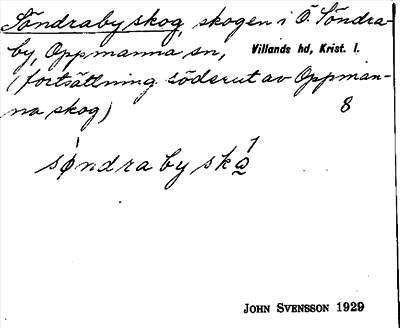 Söndraby skog, skogen i Ö. Söndra-
by, Oppmanna sn, Villands hd, Krist. l.
(fortsättning söderut av Oppman-
na skog) 8
søndraby ska
JOHN SVENSSON 1929